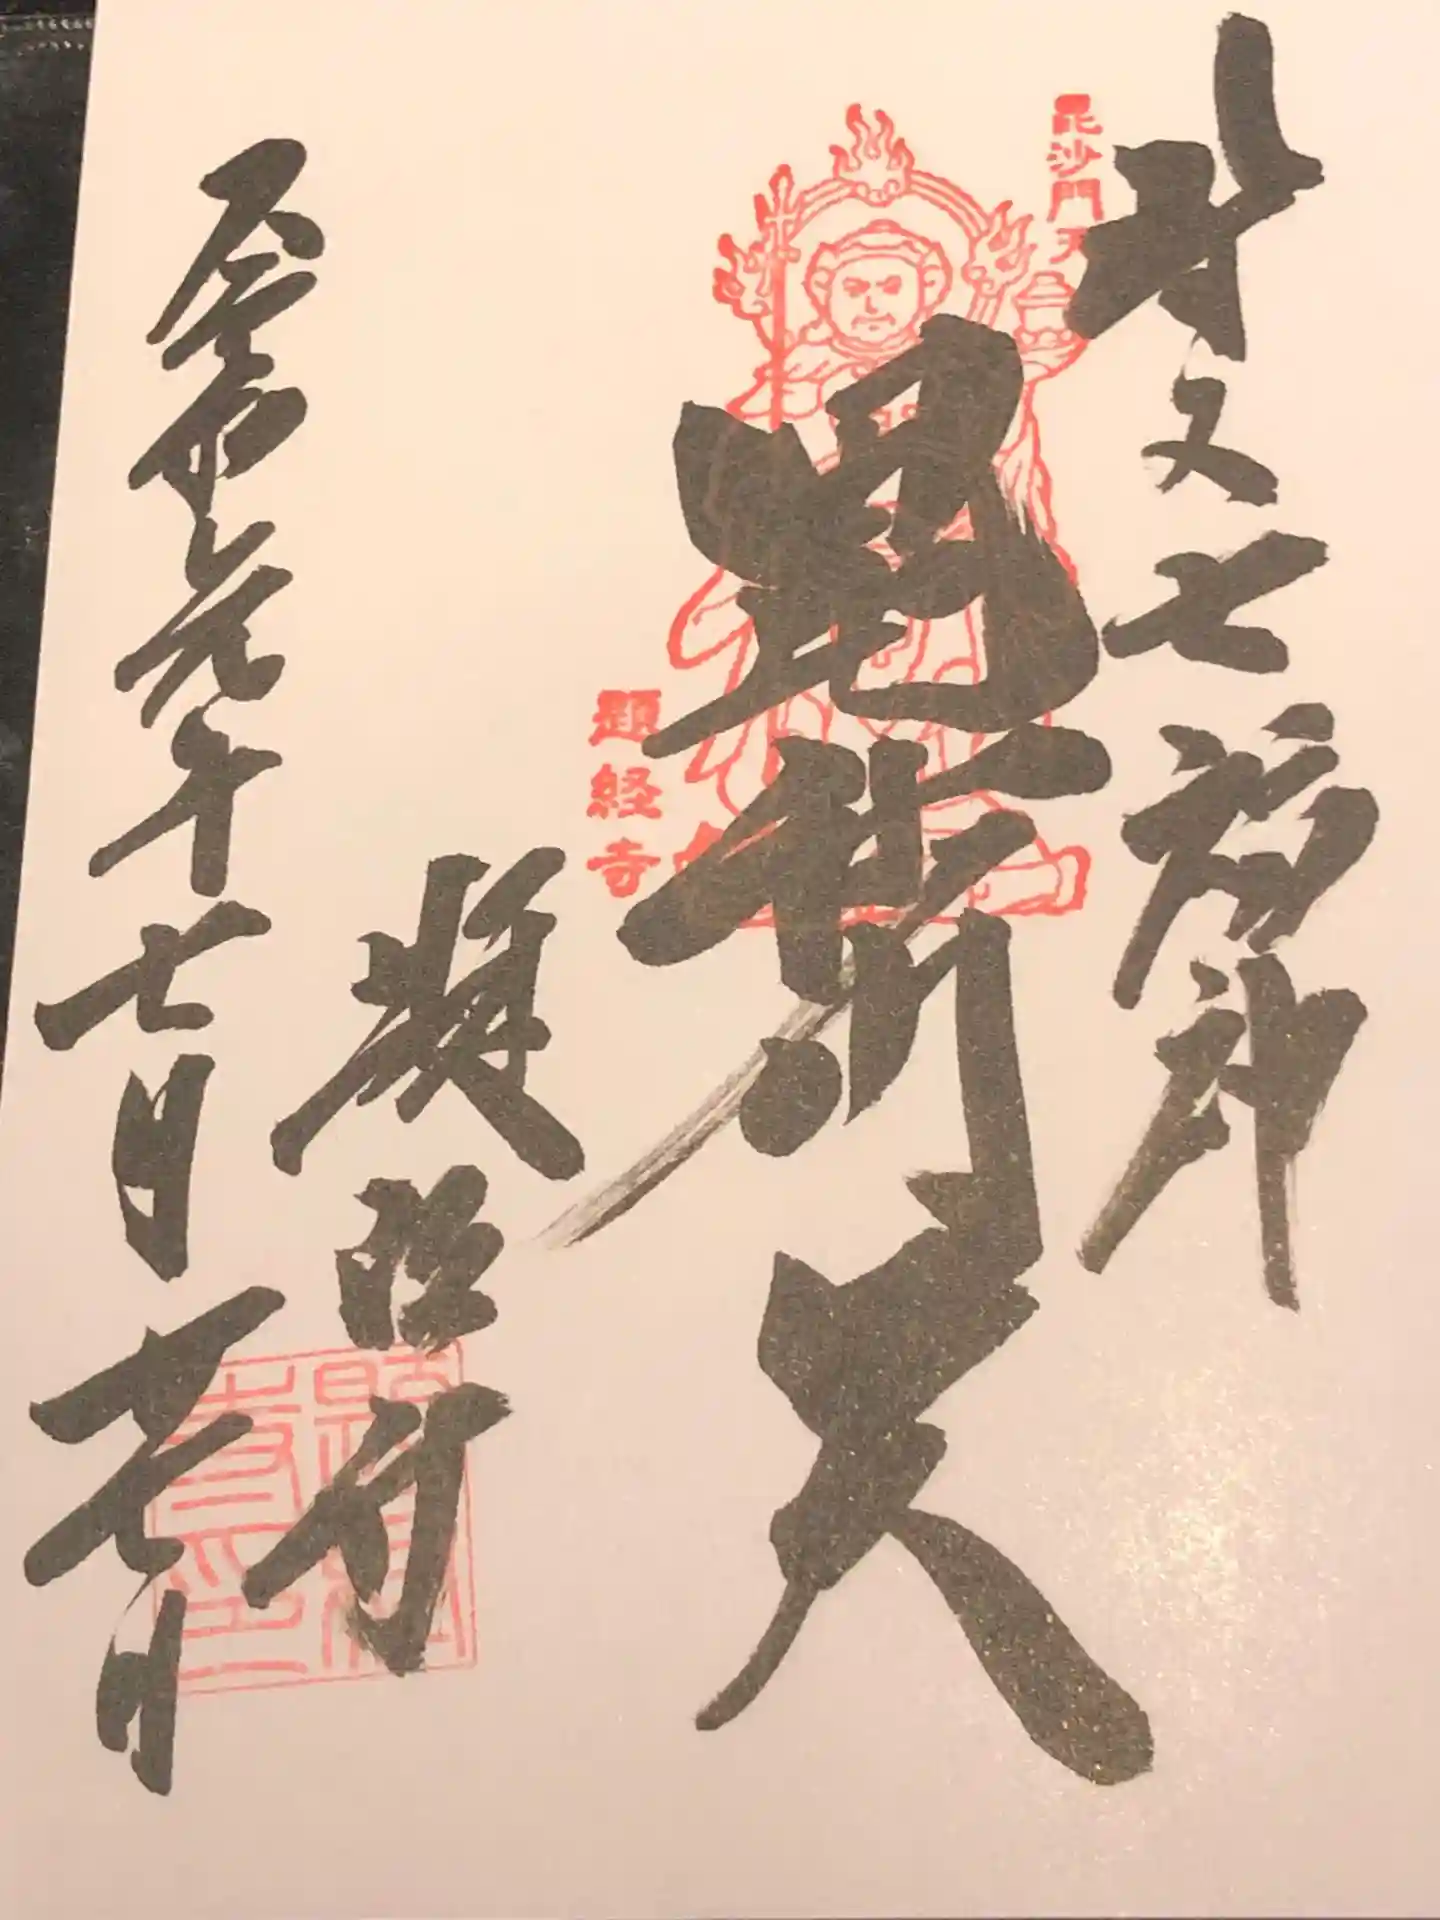 柴又七福神
毘沙門天
毘沙門天
題経寺
題経寺
令和元年七月